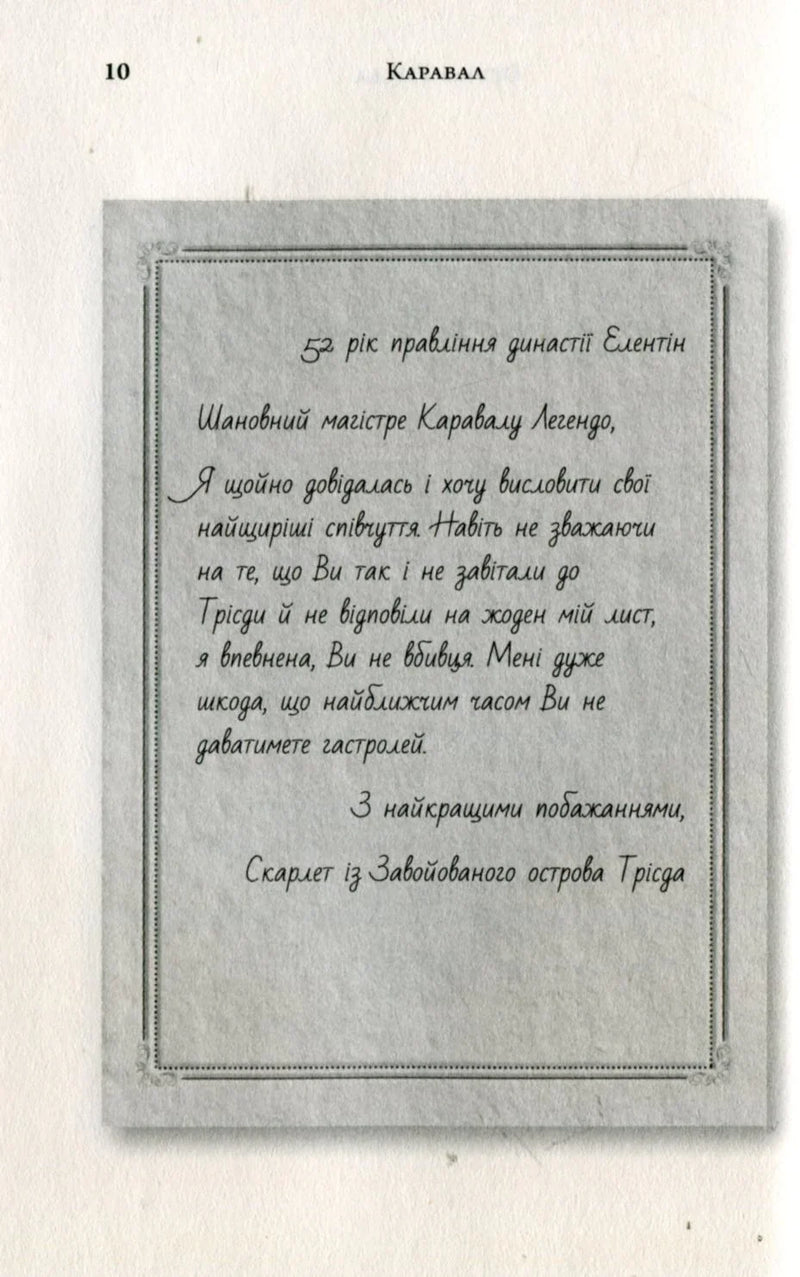 10 Каравал
52 рік правління династії Елентін
Шановний магістре Каравалу Легендо,
Я щойно довідалась і хочу висловити свої
найщиріші співчуття. Навіть не зважаючи
на те, що Ви так і не завітали до
Трісди й не відповіли на жоден мій лист,
я впевнена, Ви не вбивця. Мені дуже
шкода, що найближчим часом Ви не
даватимете гастролей.
З найкращими побажаннями,
Скарлет із Завойованого острова Трісда